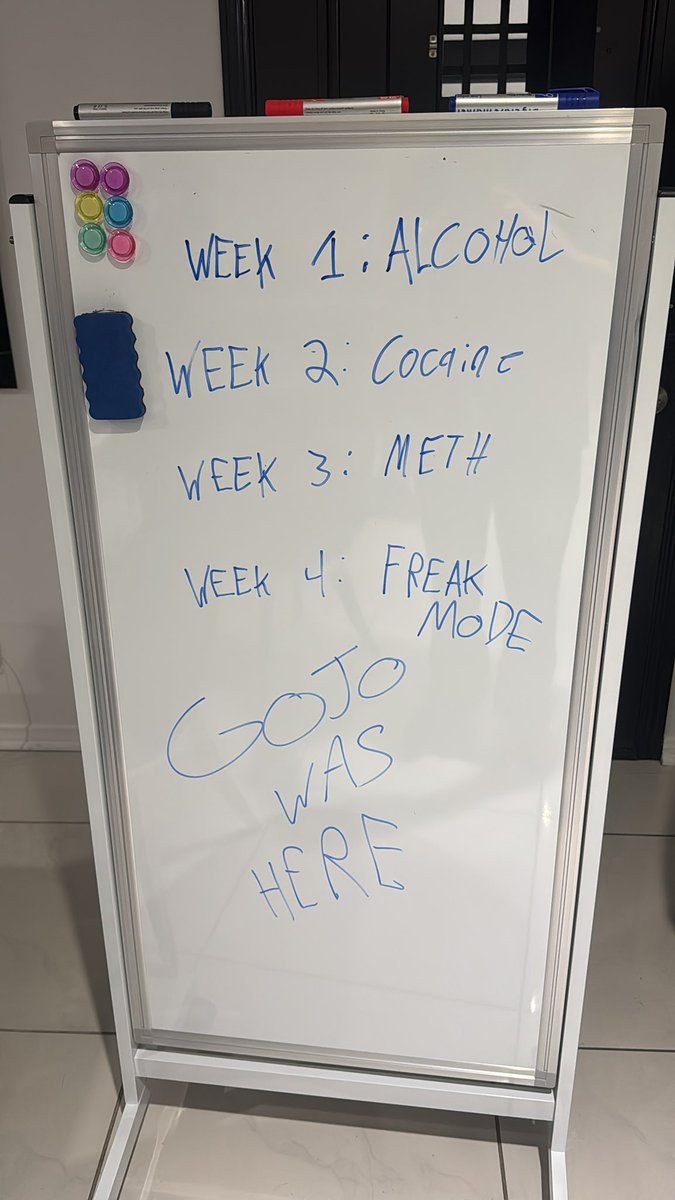 WEEK 1: ALCOHOL
WEEK 2: Cocaine
WEEK 3: METH
WEEK 4: FREAK
MODE
GOJO
WAS
HERE